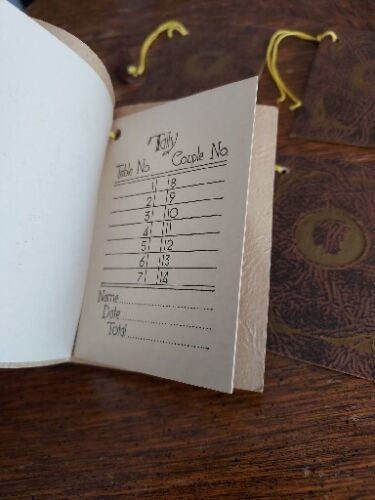 Tally
Table No Couple No.
1 8
2 9
3 10
4 11
5 12
6 13
7 14
Name
Date
Total